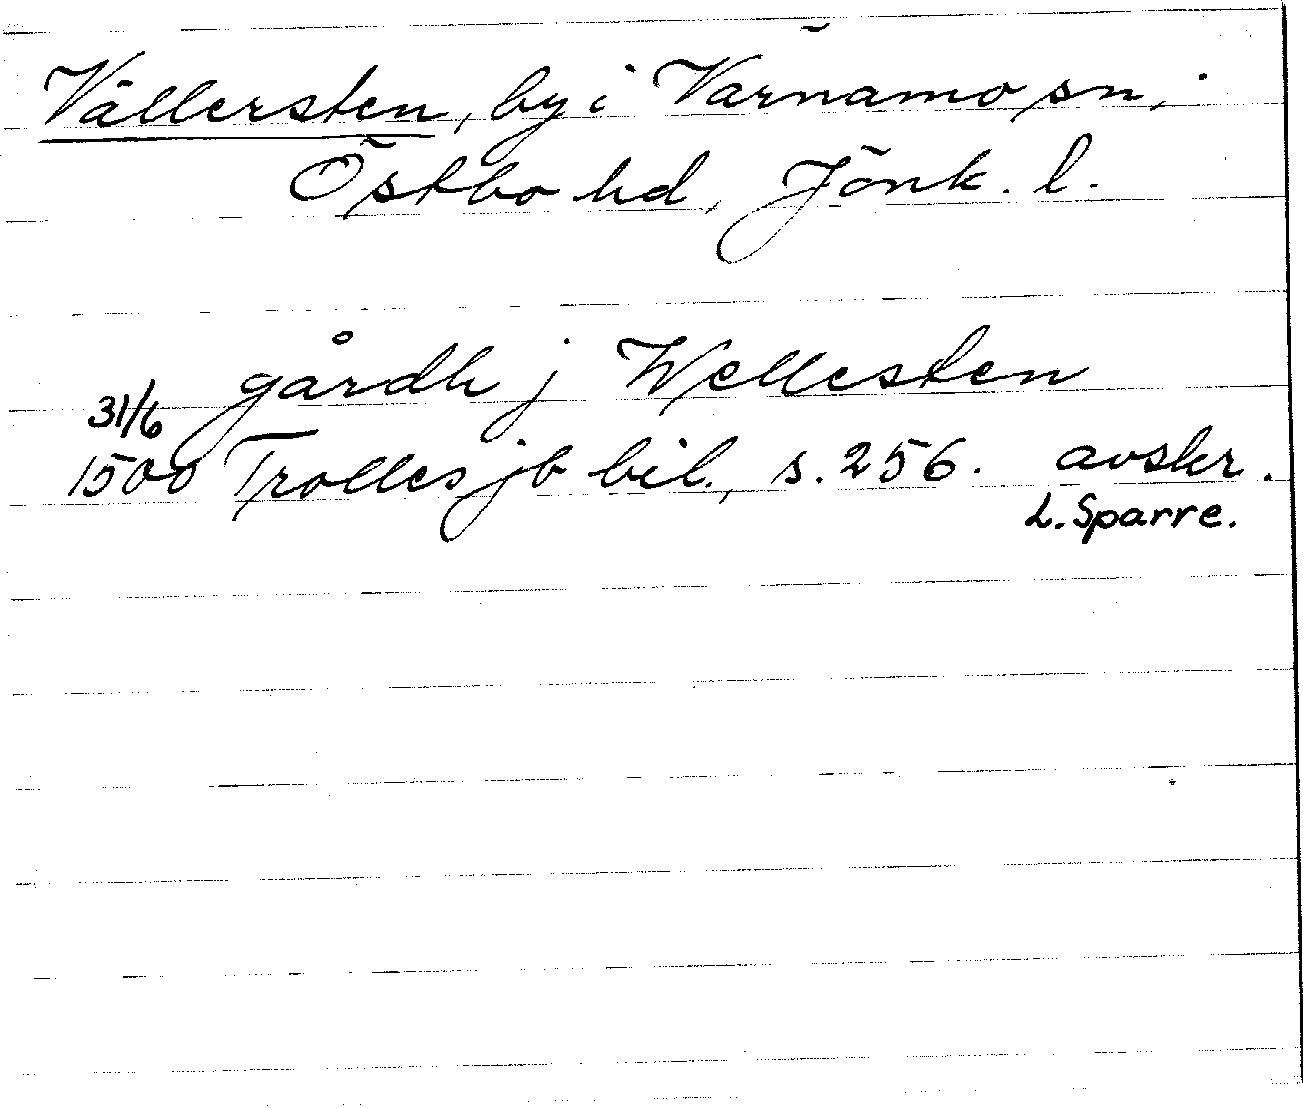 Vällersten, by i Värnamo sn,
Östbo hd, Jönk. l.
gårdh j Wellesten
31/6
1500 Trolles jb bil., s. 256. avskr.
L. Sparre.